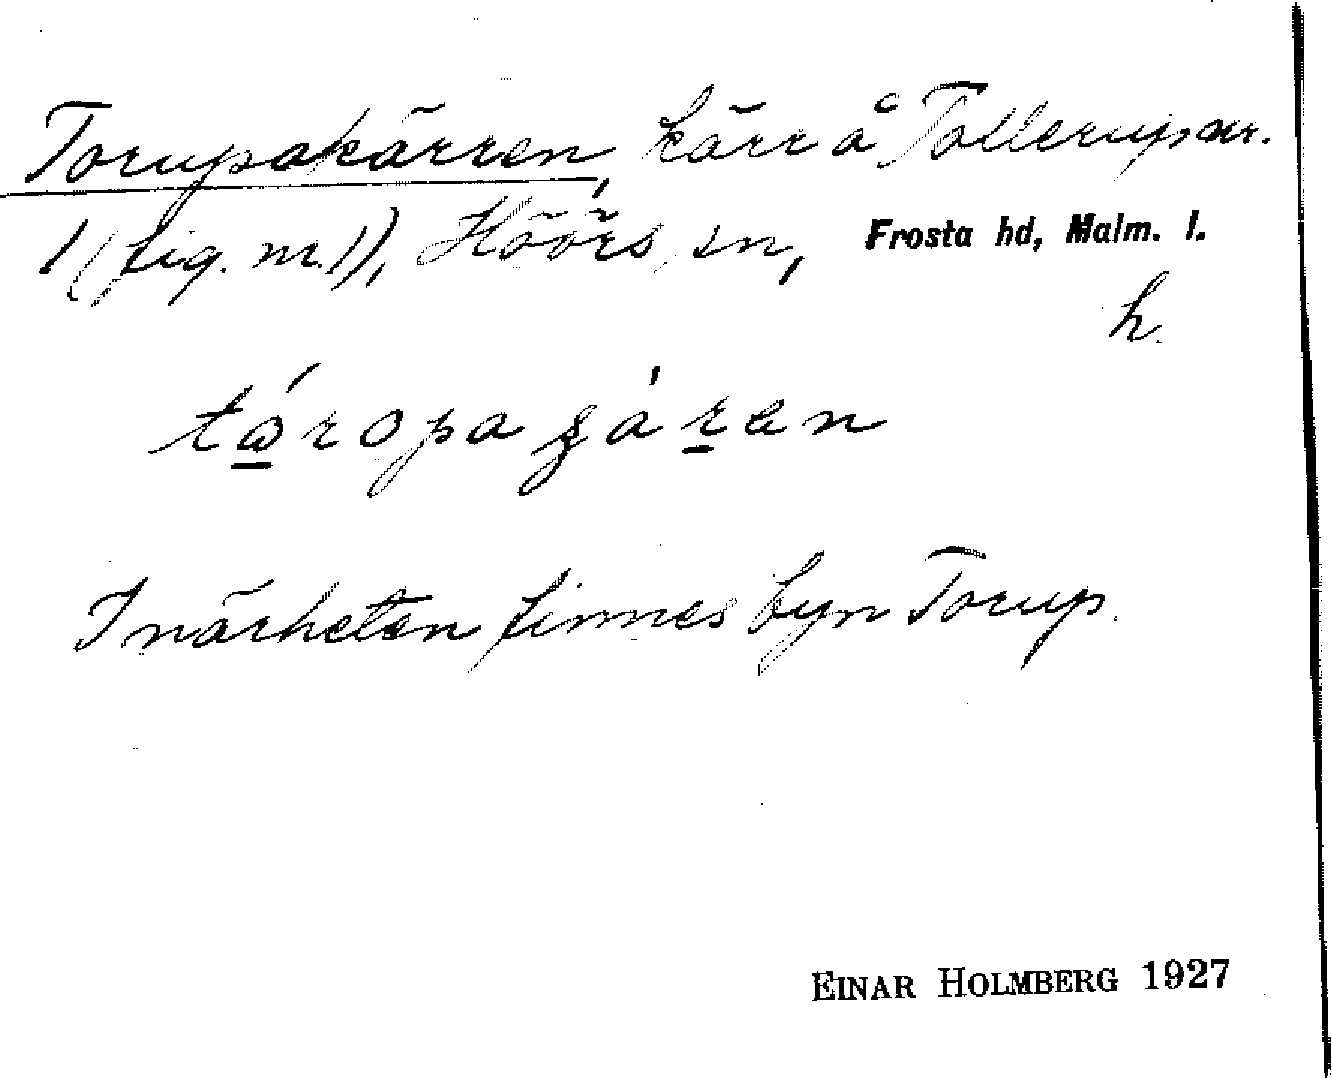 Torupakärren, kärr å Tollerup nr.
1 (fig. nr. 1), Höörs sn, Frosta hd, Malm. l.
h.
I närheten finnes byn Torup.
EINAR HOLMBERG 1927